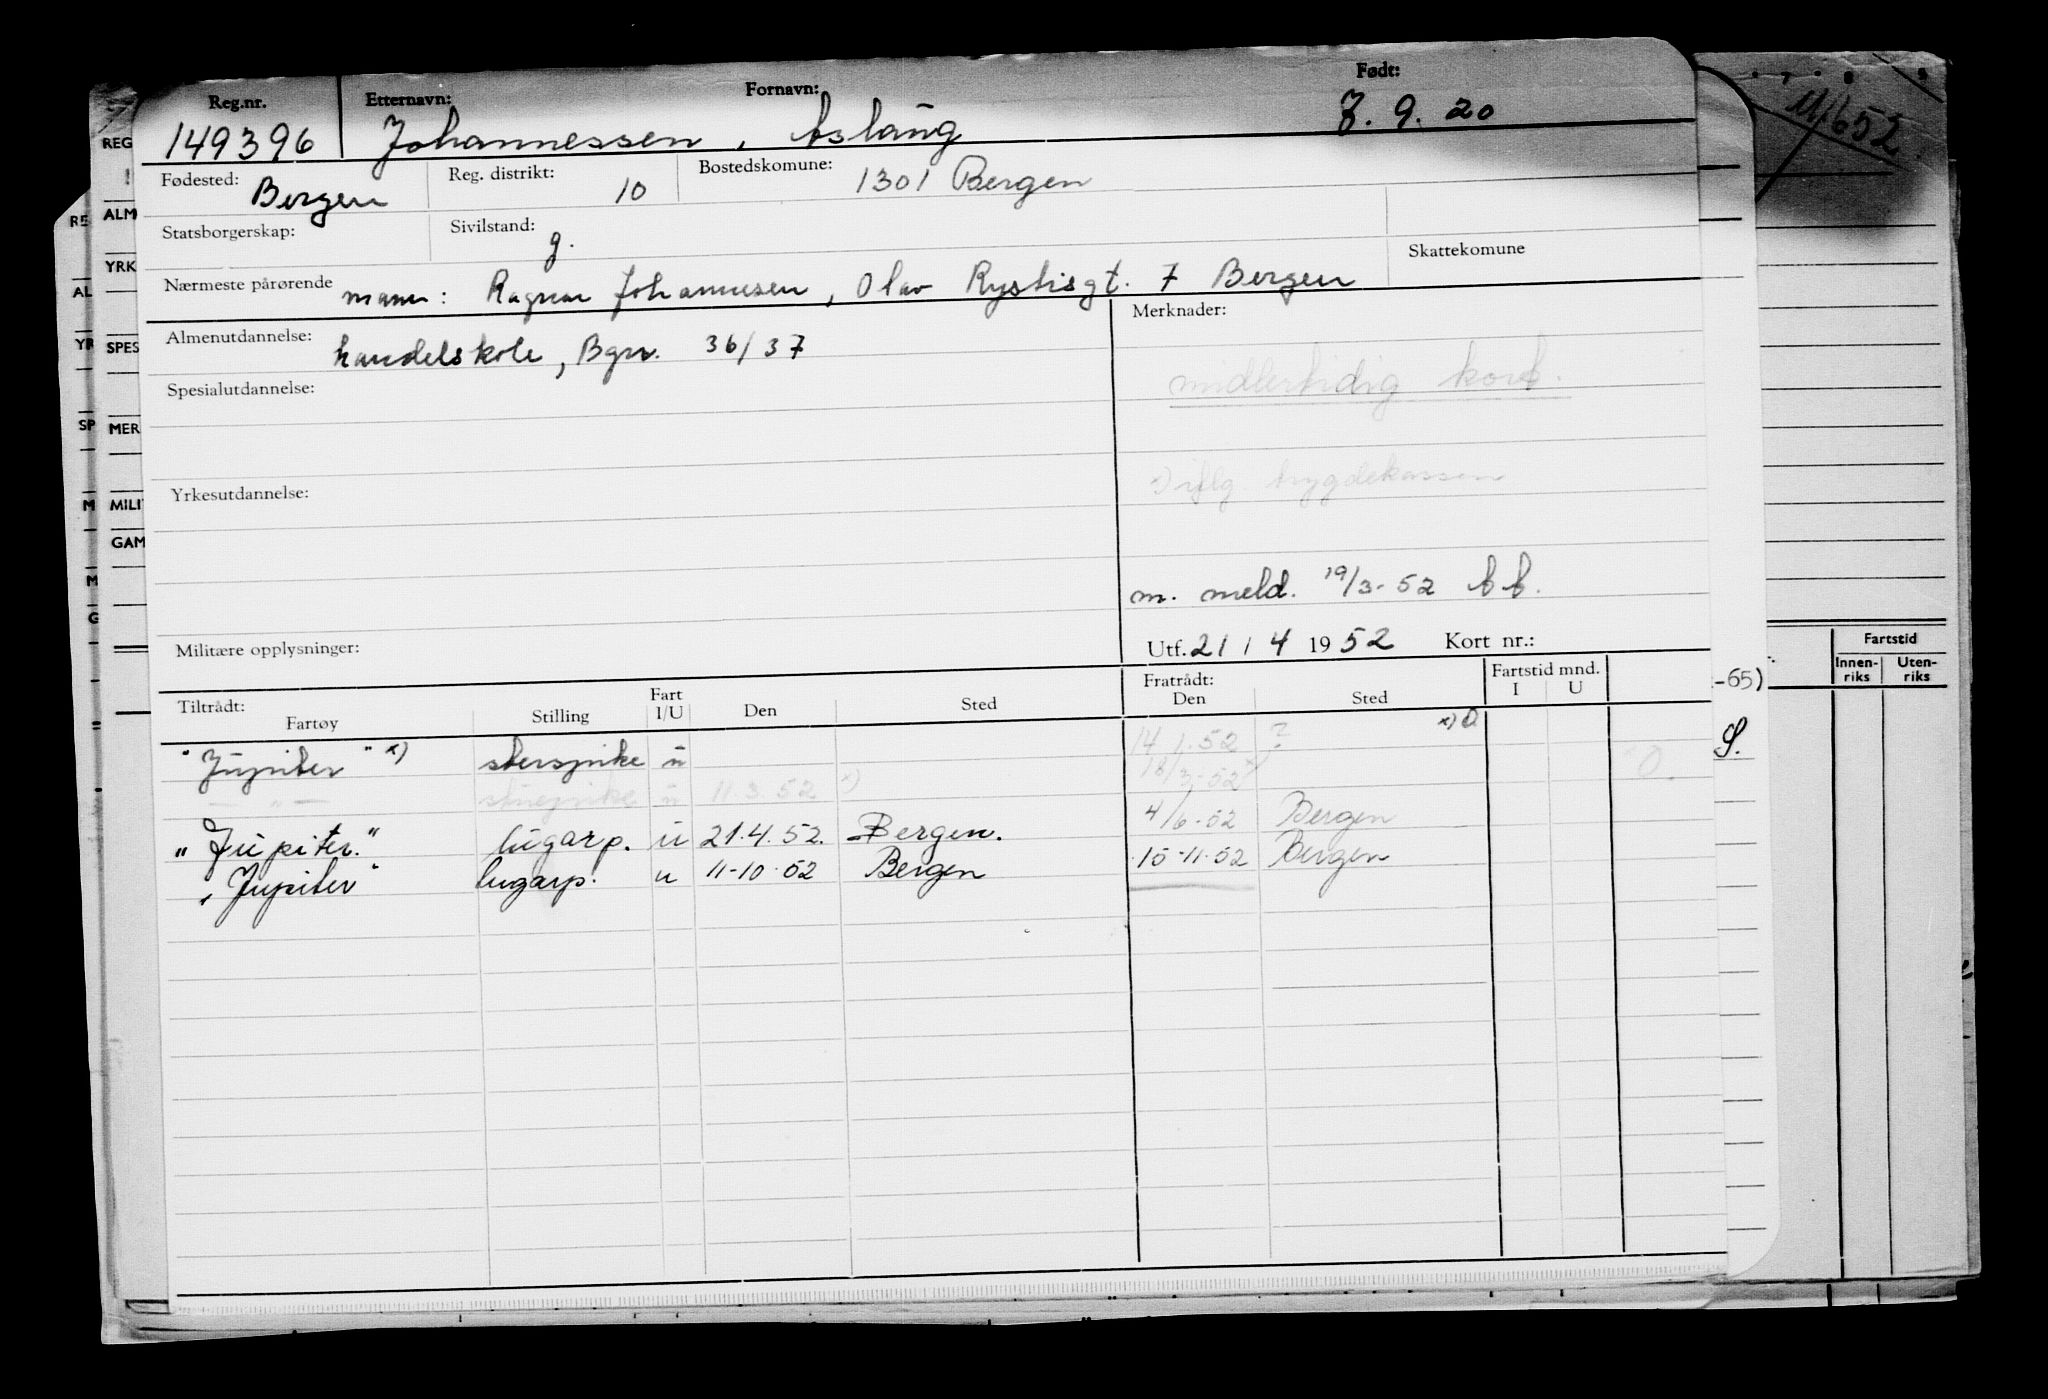 Reg.nr. Etternavn: Fornavn: Født:
149396 Johannessen, Aslaug 7. 9. 20
Fødested: Bergen Reg. distrikt: 10 Bostedskomune: 1301 Bergen
Statsborgerskap: Sivilstand: g. Skattekomune
Nærmeste pårørende mann: Ragnar Johannesen, Olav Rystisgt. 7 Bergen
Almenutdannelse: handelskole, Bgn. 36/37 Merknader:
midlertidig kort.
Spesialutdannelse:
Yrkesutdannelse: trygdekassen
m. meld. 19/3-52
Militære opplysninger: Utf. 21/4 1952 Kort nr.:
Tiltrådt: Fartøy Stilling Fart I/U Den Sted Fratrådt: Den Sted Fartstid mnd. I U
"Jupiter" x) u 14/1.52 ? x) 0
— " — u 11.3.52 x) 18/3-52 x) 0.
"Jupiter." lugarp. u 21.4.52. Bergen. 4/6-52 Bergen
"Jupiter" lugarp. u 11-10-52 Bergen 15-11-52 Bergen
REG
ALM
YRK
SPES
MER
MILI
GAM
RE
AL
YR
SP
M
M
G
7 8 9
Fartstid
Innen-riks Uten-riks
-65)
S.